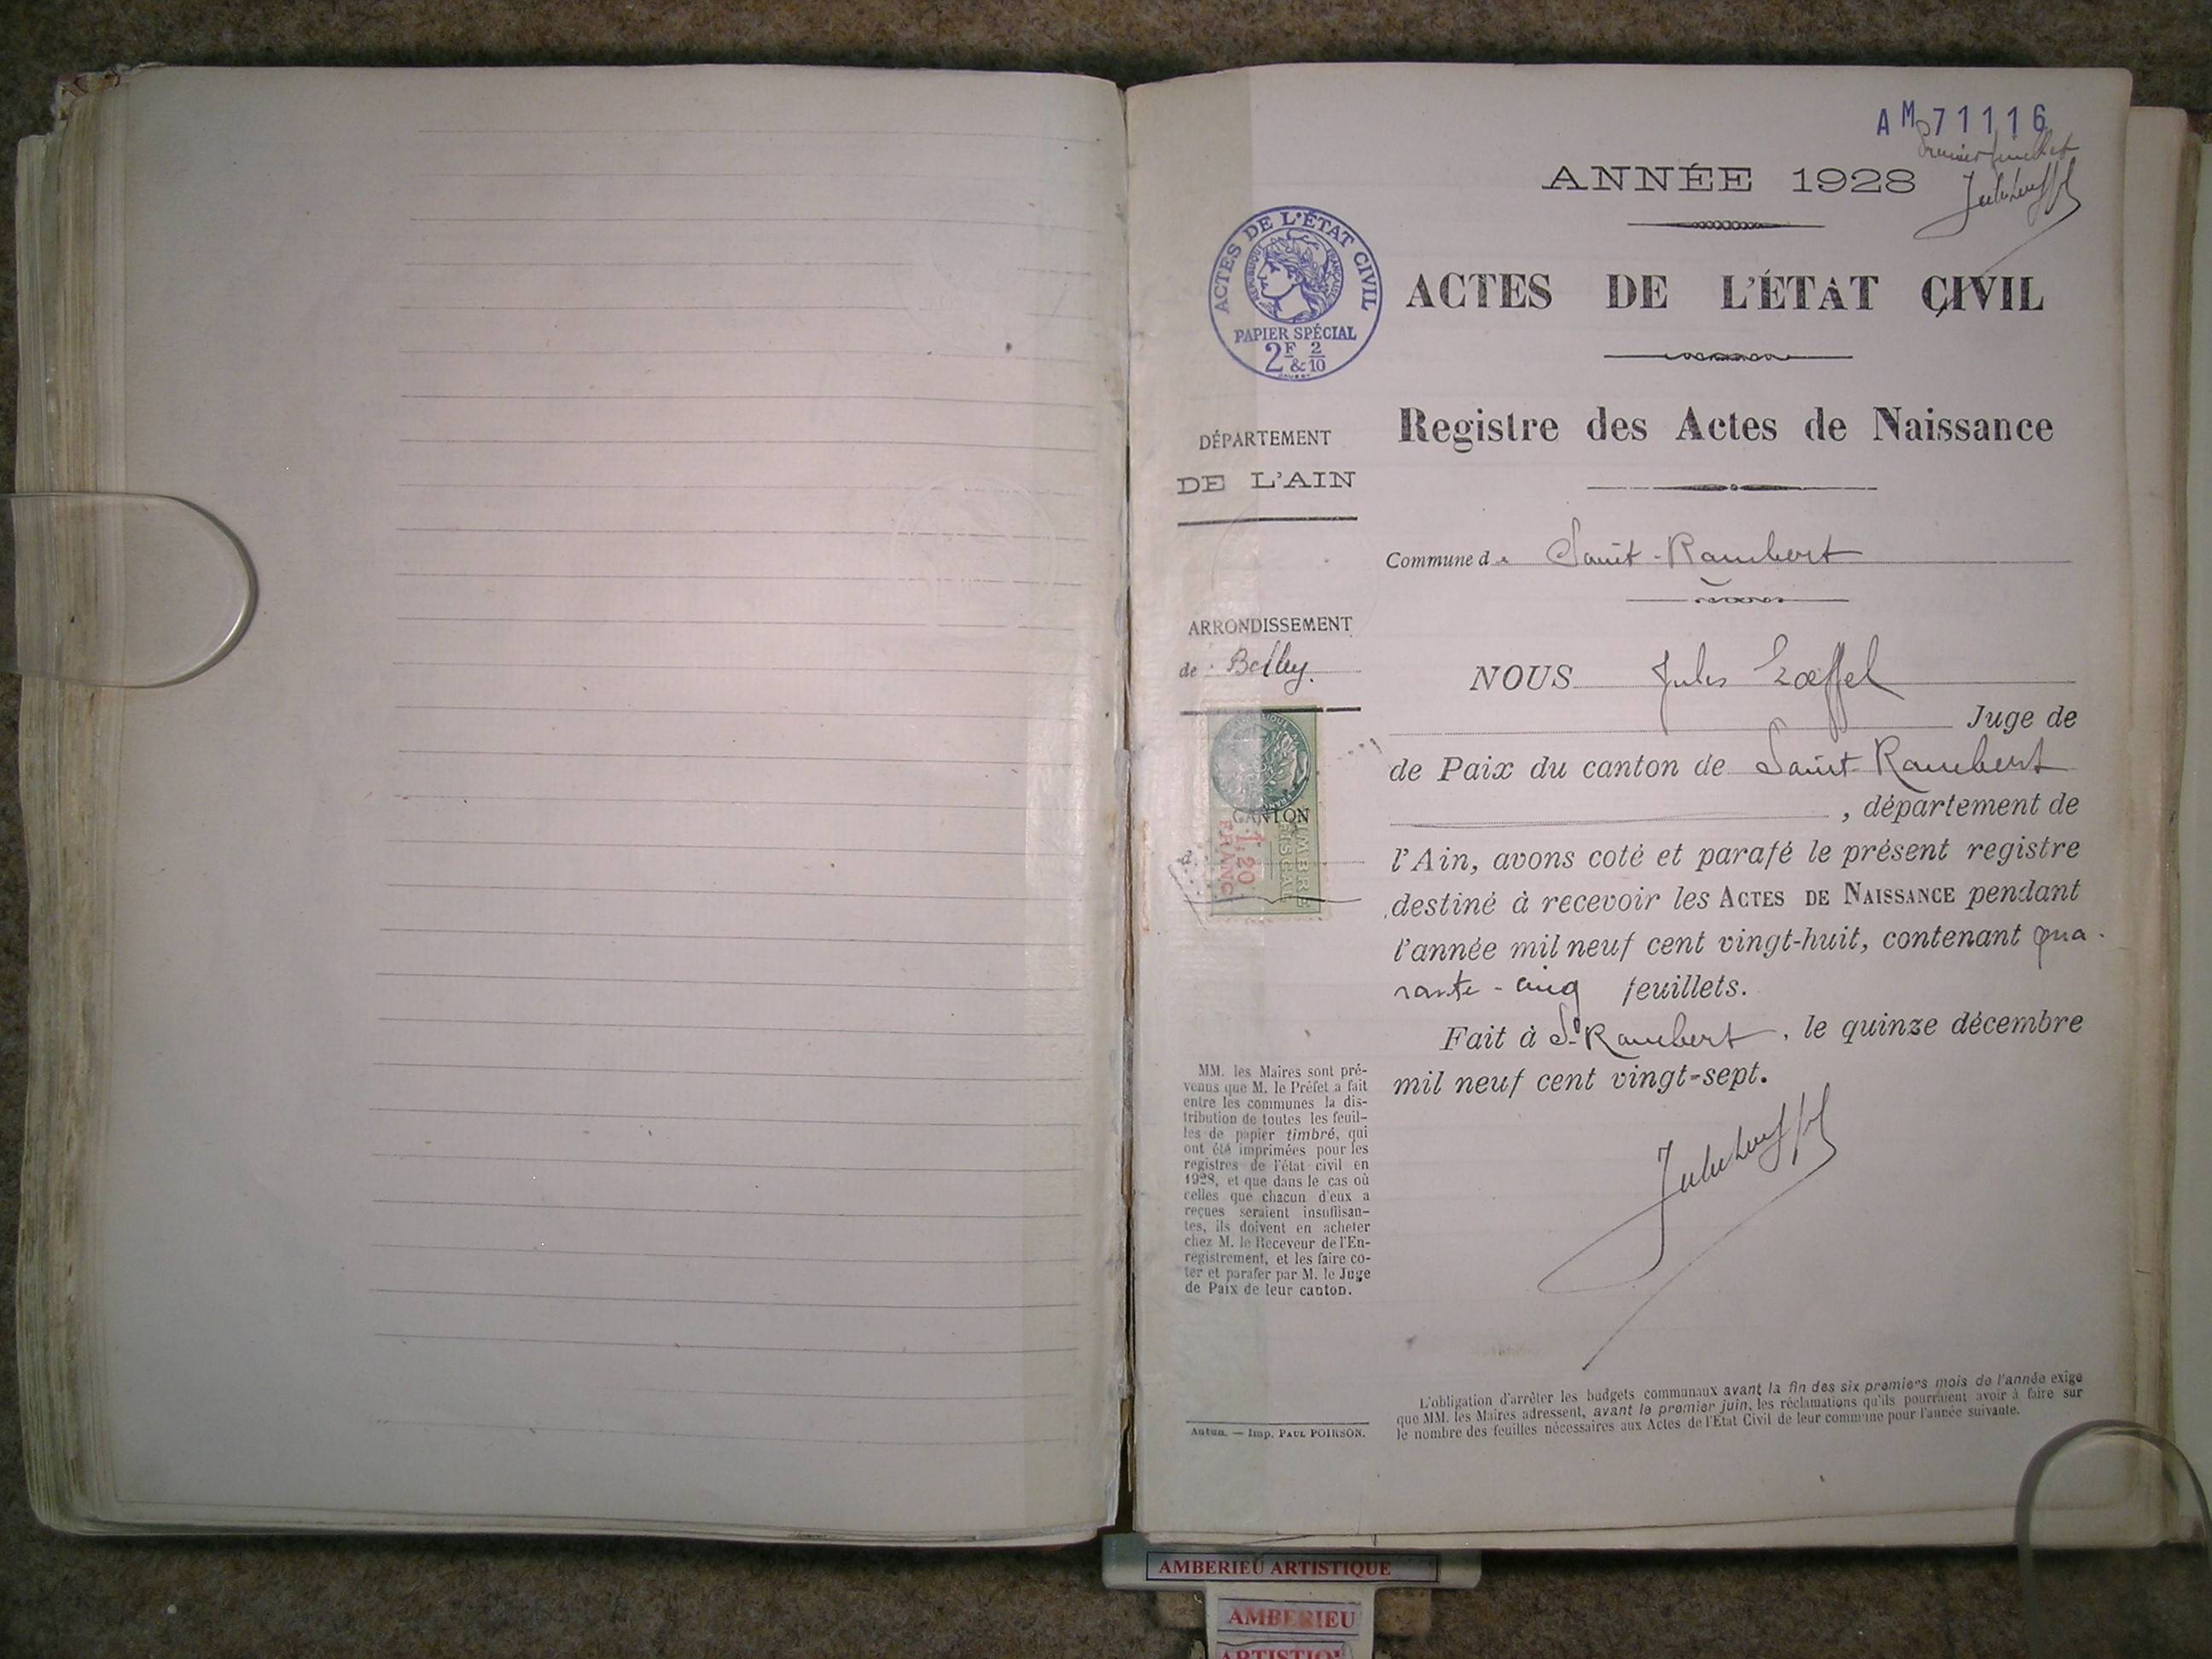 AM 71116
Premier feuillet
ANNÉE 1928
ACTES DE L'ÉTAT CIVIL
RÉPUBLIQUE FRANÇAISE
PAPIER SPÉCIAL
2F & 2/10
ACTES DE L'ÉTAT CIVIL
Registre des Actes de Naissance
DÉPARTEMENT
DE L'AIN
Commune de Saint-Rambert
ARRONDISSEMENT
de Belley.
NOUS Jules Lœffel
Juge de
de Paix du canton de Saint-Rambert
, département de
l'Ain, avons coté et parafé le présent registre
destiné à recevoir les ACTES DE NAISSANCE pendant
l'année mil neuf cent vingt-huit, contenant qua-
rante-cinq feuillets.
Fait à St-Rambert, le quinze décembre
mil neuf cent vingt-sept.
CANTON
TIMBRE
FISCAL
1F,20
FRANC
MM. les Maires sont pré-
venus que M. le Préfet a fait
entre les communes la dis-
tribution de toutes les feuil-
les de papier timbré, qui
ont été imprimées pour les
registres de l'état civil en
1928, et que dans le cas où
celles que chacun d'eux a
reçues seraient insuffisan-
tes, ils doivent en acheter
chez M. le Receveur de l'En-
registrement, et les faire co-
ter et parafer par M. le Juge
de Paix de leur canton.
Autun. — Imp. PAUL POIRSON.
L'obligation d'arrêter les budgets communaux avant la fin des six premiers mois de l'année exige
que MM. les Maires adressent, avant le premier juin, les réclamations qu'ils pourraient avoir à faire sur
le nombre des feuilles nécessaires aux Actes de l'Etat Civil de leur commune pour l'année suivante.
AMBERIEU ARTISTIQUE
AMBERIEU
ARTISTIQUE